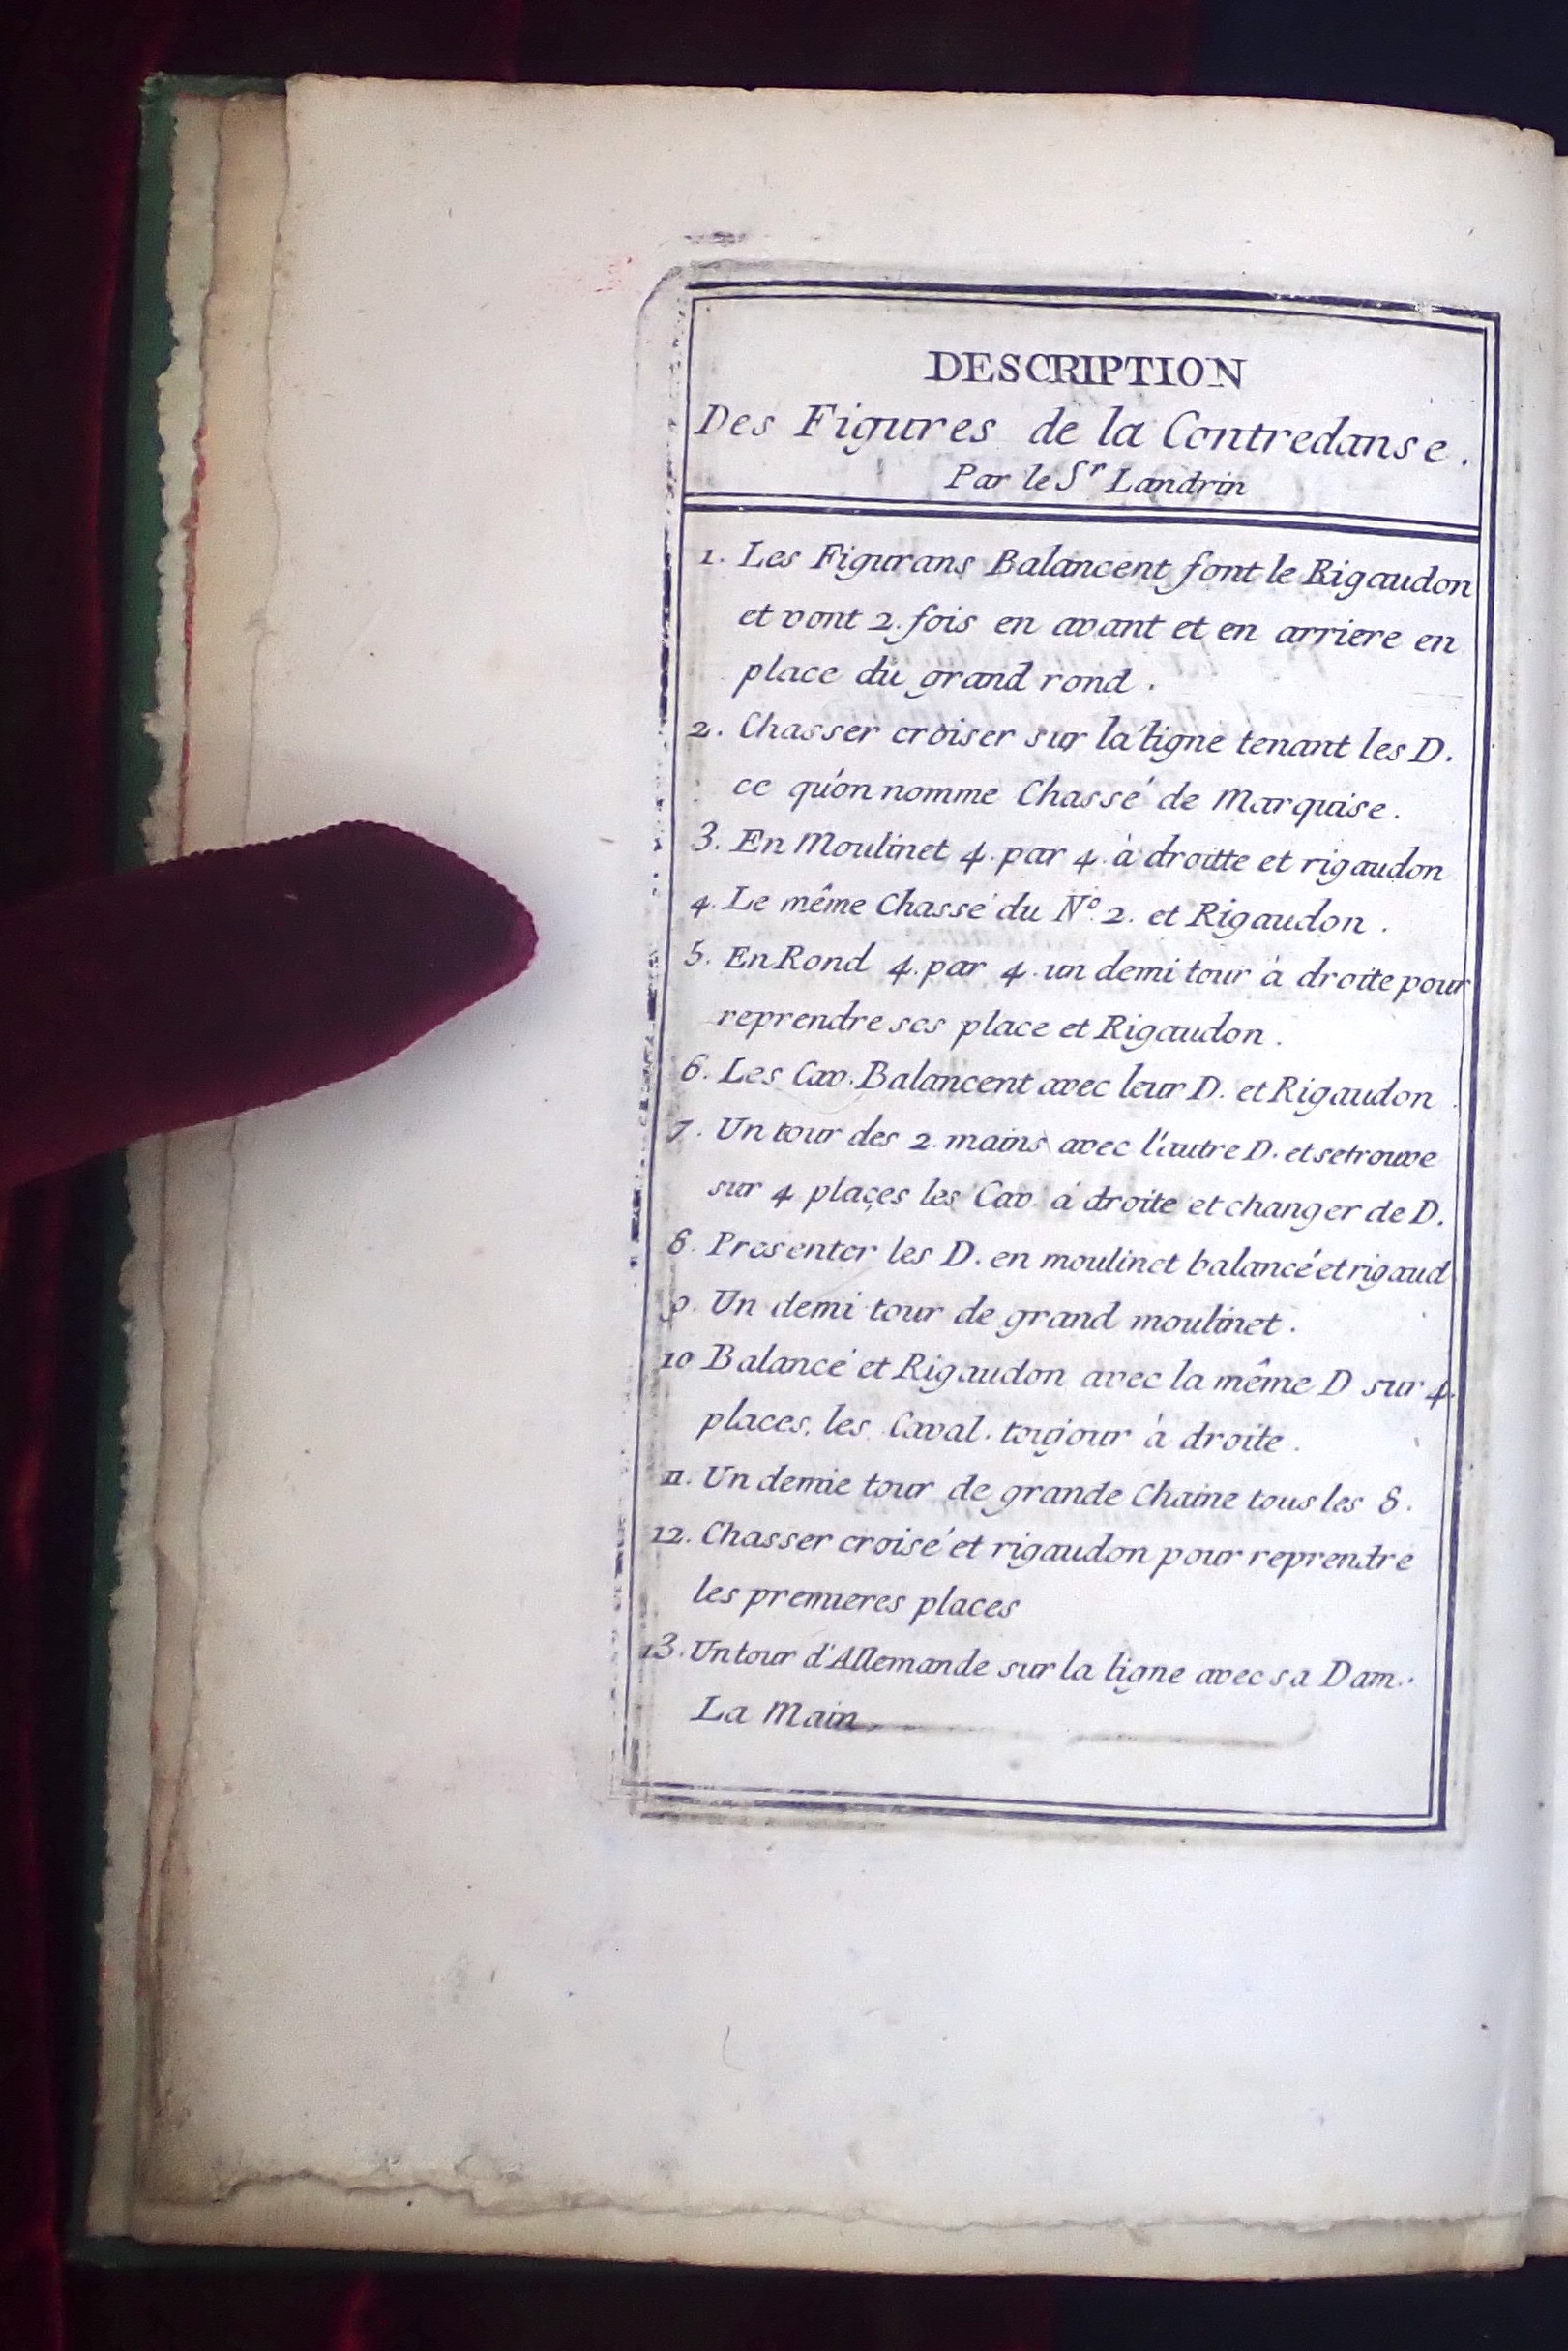 DESCRIPTION
Des Figures de la Contredanse.
Par le Sr Landrin
1. Les Figurans Balancent font le Rigaudon
et vont 2. fois en avant et en arriere en
place du grand rond.
2. Chasser croiser sur la ligne tenant les D.
ce qu'on nomme Chassé de Marquise.
3. En Moulinet 4. par 4. à droitte et rigaudon
4. Le même Chassé du No. 2. et Rigaudon.
5. En Rond 4. par 4. un demi tour à droite pour
reprendre ses place et Rigaudon.
6. Les Cav. Balancent avec leur D. et Rigaudon.
7. Un tour des 2. mains avec l'autre D. et se trouve
sur 4 places les Cav. à droite et changer de D.
8. Presenter les D. en moulinet balancé et rigaud
9. Un demi tour de grand moulinet.
10 Balancé et Rigaudon avec la même D sur 4.
places, les Caval. toujour à droite.
11. Un demie tour de grande Chaine tous les 8.
12. Chasser croisé et rigaudon pour reprendre
les premieres places
13. Un tour d'Allemande sur la ligne avec sa Dam.
La Main.